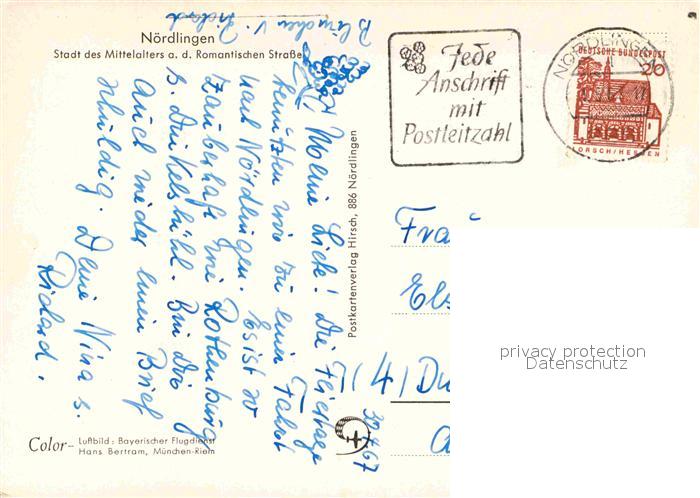 Nördlingen
Stadt des Mittelalters a. d. Romantischen Straße
Blümchen v. Richard
Meine Liebe! Die Feiertage
benützten wir zu einer Fahrt
nach Nördlingen. Es ist so
zauberhaft wie Rothenburg
o. Dinkelsbühl. Bin Dir
auch wieder einen Brief
schuldig. Deine Nina u.
Richard.
Postkartenverlag Hirsch, 886 Nördlingen
Color- Luftbild: Bayerischer Flugdienst
Hans Bertram, München-Riem
Jede
Anschrift
mit
Postleitzahl
NÖRDLINGEN
DEUTSCHE BUNDESPOST
20
LORSCH/HESSEN
Frau
Els
(4) Du
30.4.67
privacy protection
Datenschutz